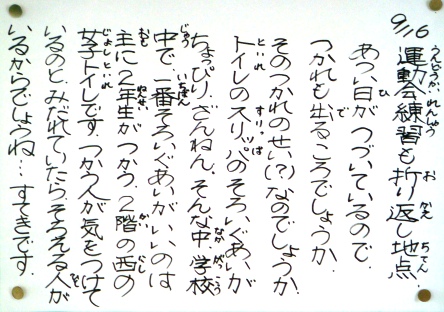 9/16
運動会練習も折り返し地点.
うんどうかいれんしゅう お かえ ちてん
あつい日がつづいているので.
ひ
つかれも出るころでしょうか.
で
そのつかれのせい(?)なのでしょうか.
トイレのスリッパのそろいぐあいが
といれ すりっぱ
ちょっぴりざんねん。そんな中 学校
なか がっこう
中で一番そろいぐあいがいいのは
じゅう いちばん
主に2年生がつかう.2階の西の
おも ねんせい かい にし
女子トイレです つかう人が気をつけて
じょしといれ
いるのと、みだれていたらそろえる人が
いるからでしょうね…すてきです.